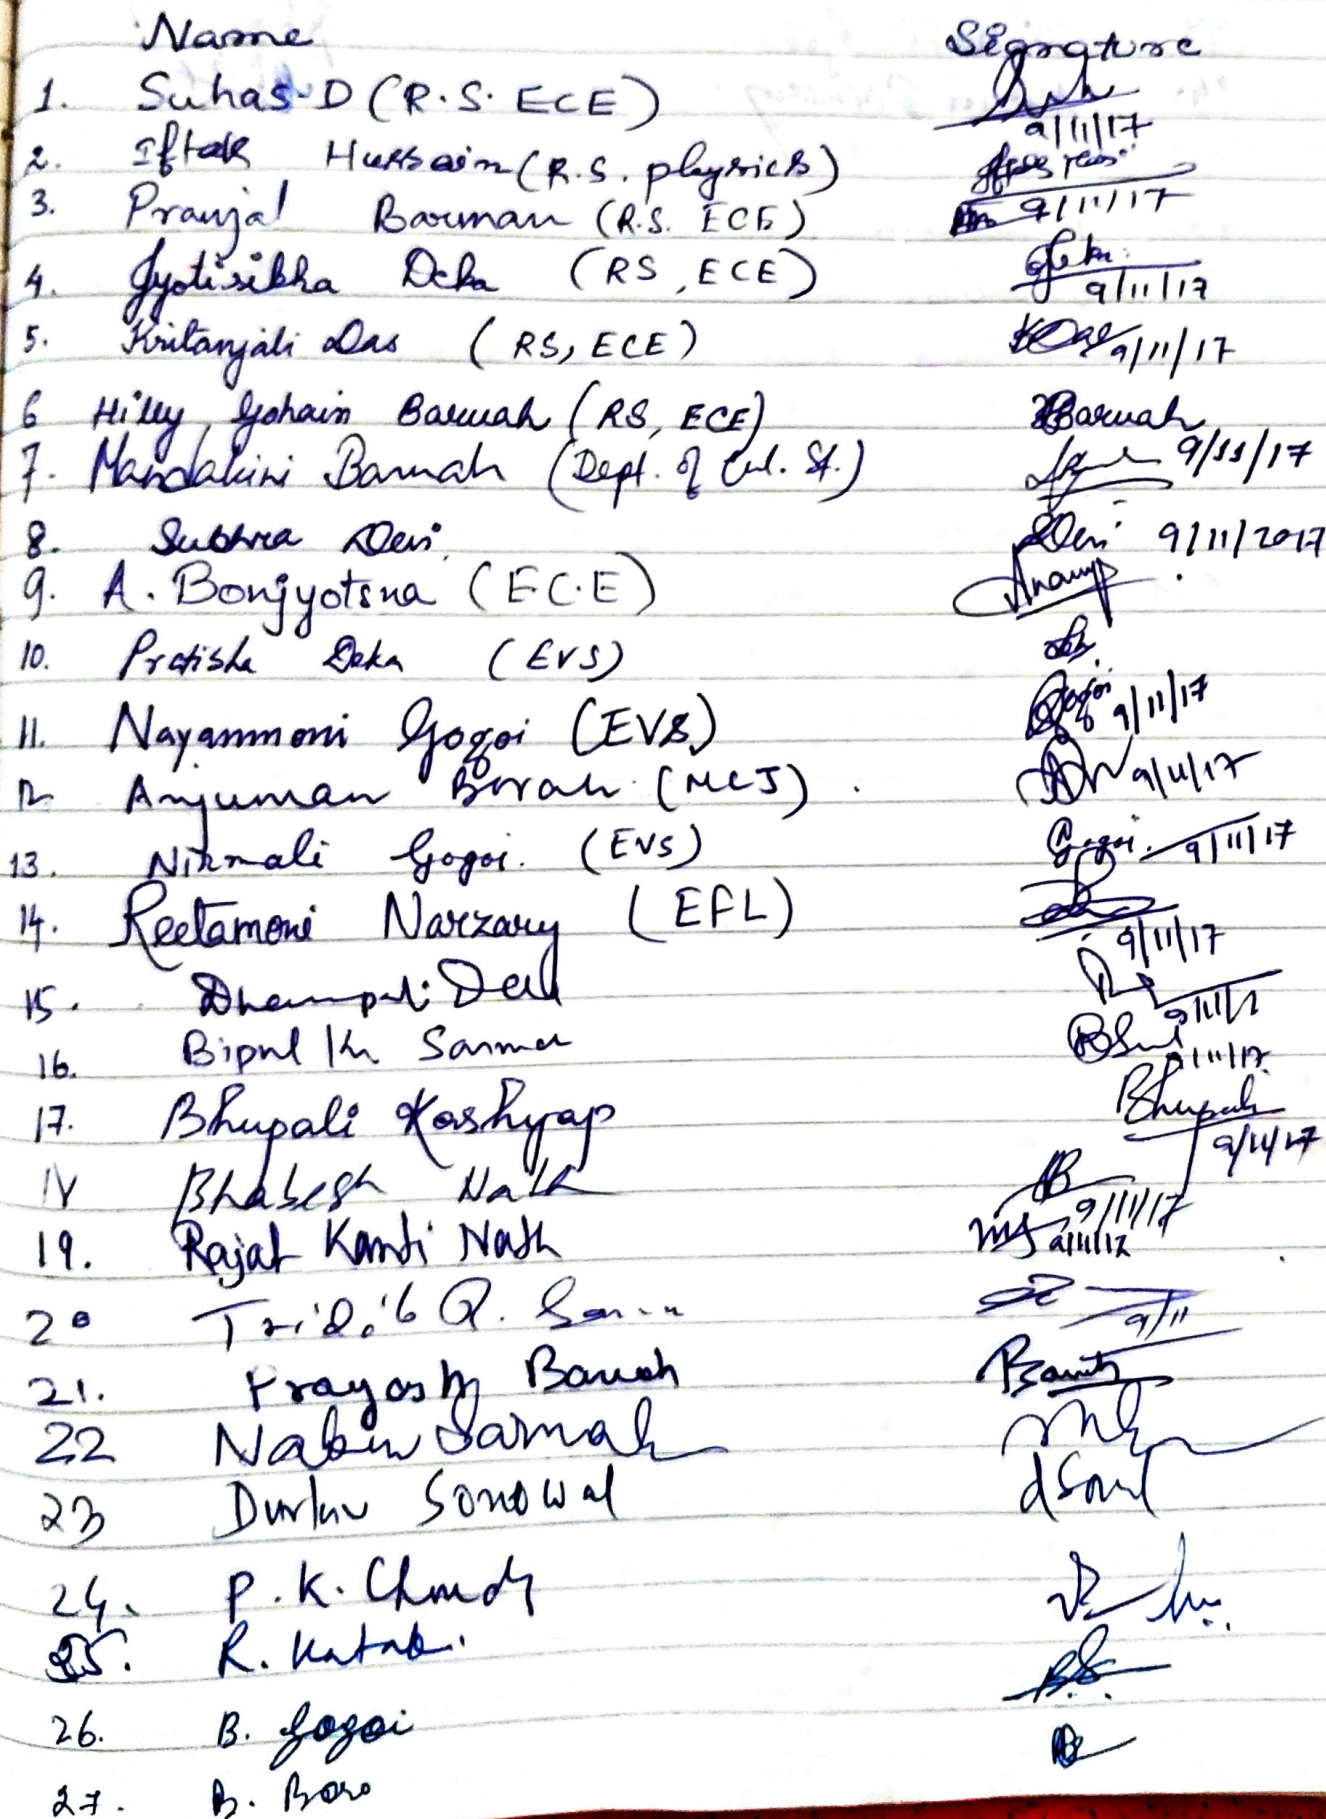 Name Signature
1. Suhas D (R.S. ECE)
9/11/17
2. Iftak Hussain (R.S. physics)
3. Pranjal Barman (R.S. ECE) 9/11/17
4. Jyotisikha Deka (RS, ECE)
9/11/17
5. Kritanjali Das (RS, ECE) KDas 9/11/17
6 Hilly Gohain Baruah (RS, ECE) HBaruah
7. Mandakini Baruah (Dept. of Cul. St.) 9/11/17
8. Subhra Devi SDevi 9/11/2017
9. A. Bonjyotsna (E.C.E)
10. Pratisha Deka (EVS)
11. Nayanmoni Gogoi (EVS) Gogoi 9/11/17
12 Anjuman Borah (MCJ) 9/11/17
13. Nirmali Gogoi. (EVS) Gogoi. 9/11/17
14. Reetamoni Narzary (EFL)
9/11/17
15. Deka
9/11/17
16. Bipul Kr Sarma
9/11/17
17. Bhupali Kashyap Bhupali
9/11/17
18 Bhabesh Nath
9/11/17
19. Rajat Kanti Nath 9/11/17
20 Tridib R. Sarma
9/11
21. Prayash Baruah
22 Nabin Sarmah
23 Sonowal
24. P. K.
25. R. Kataki.
26. B. Gogoi
27. B. Boro